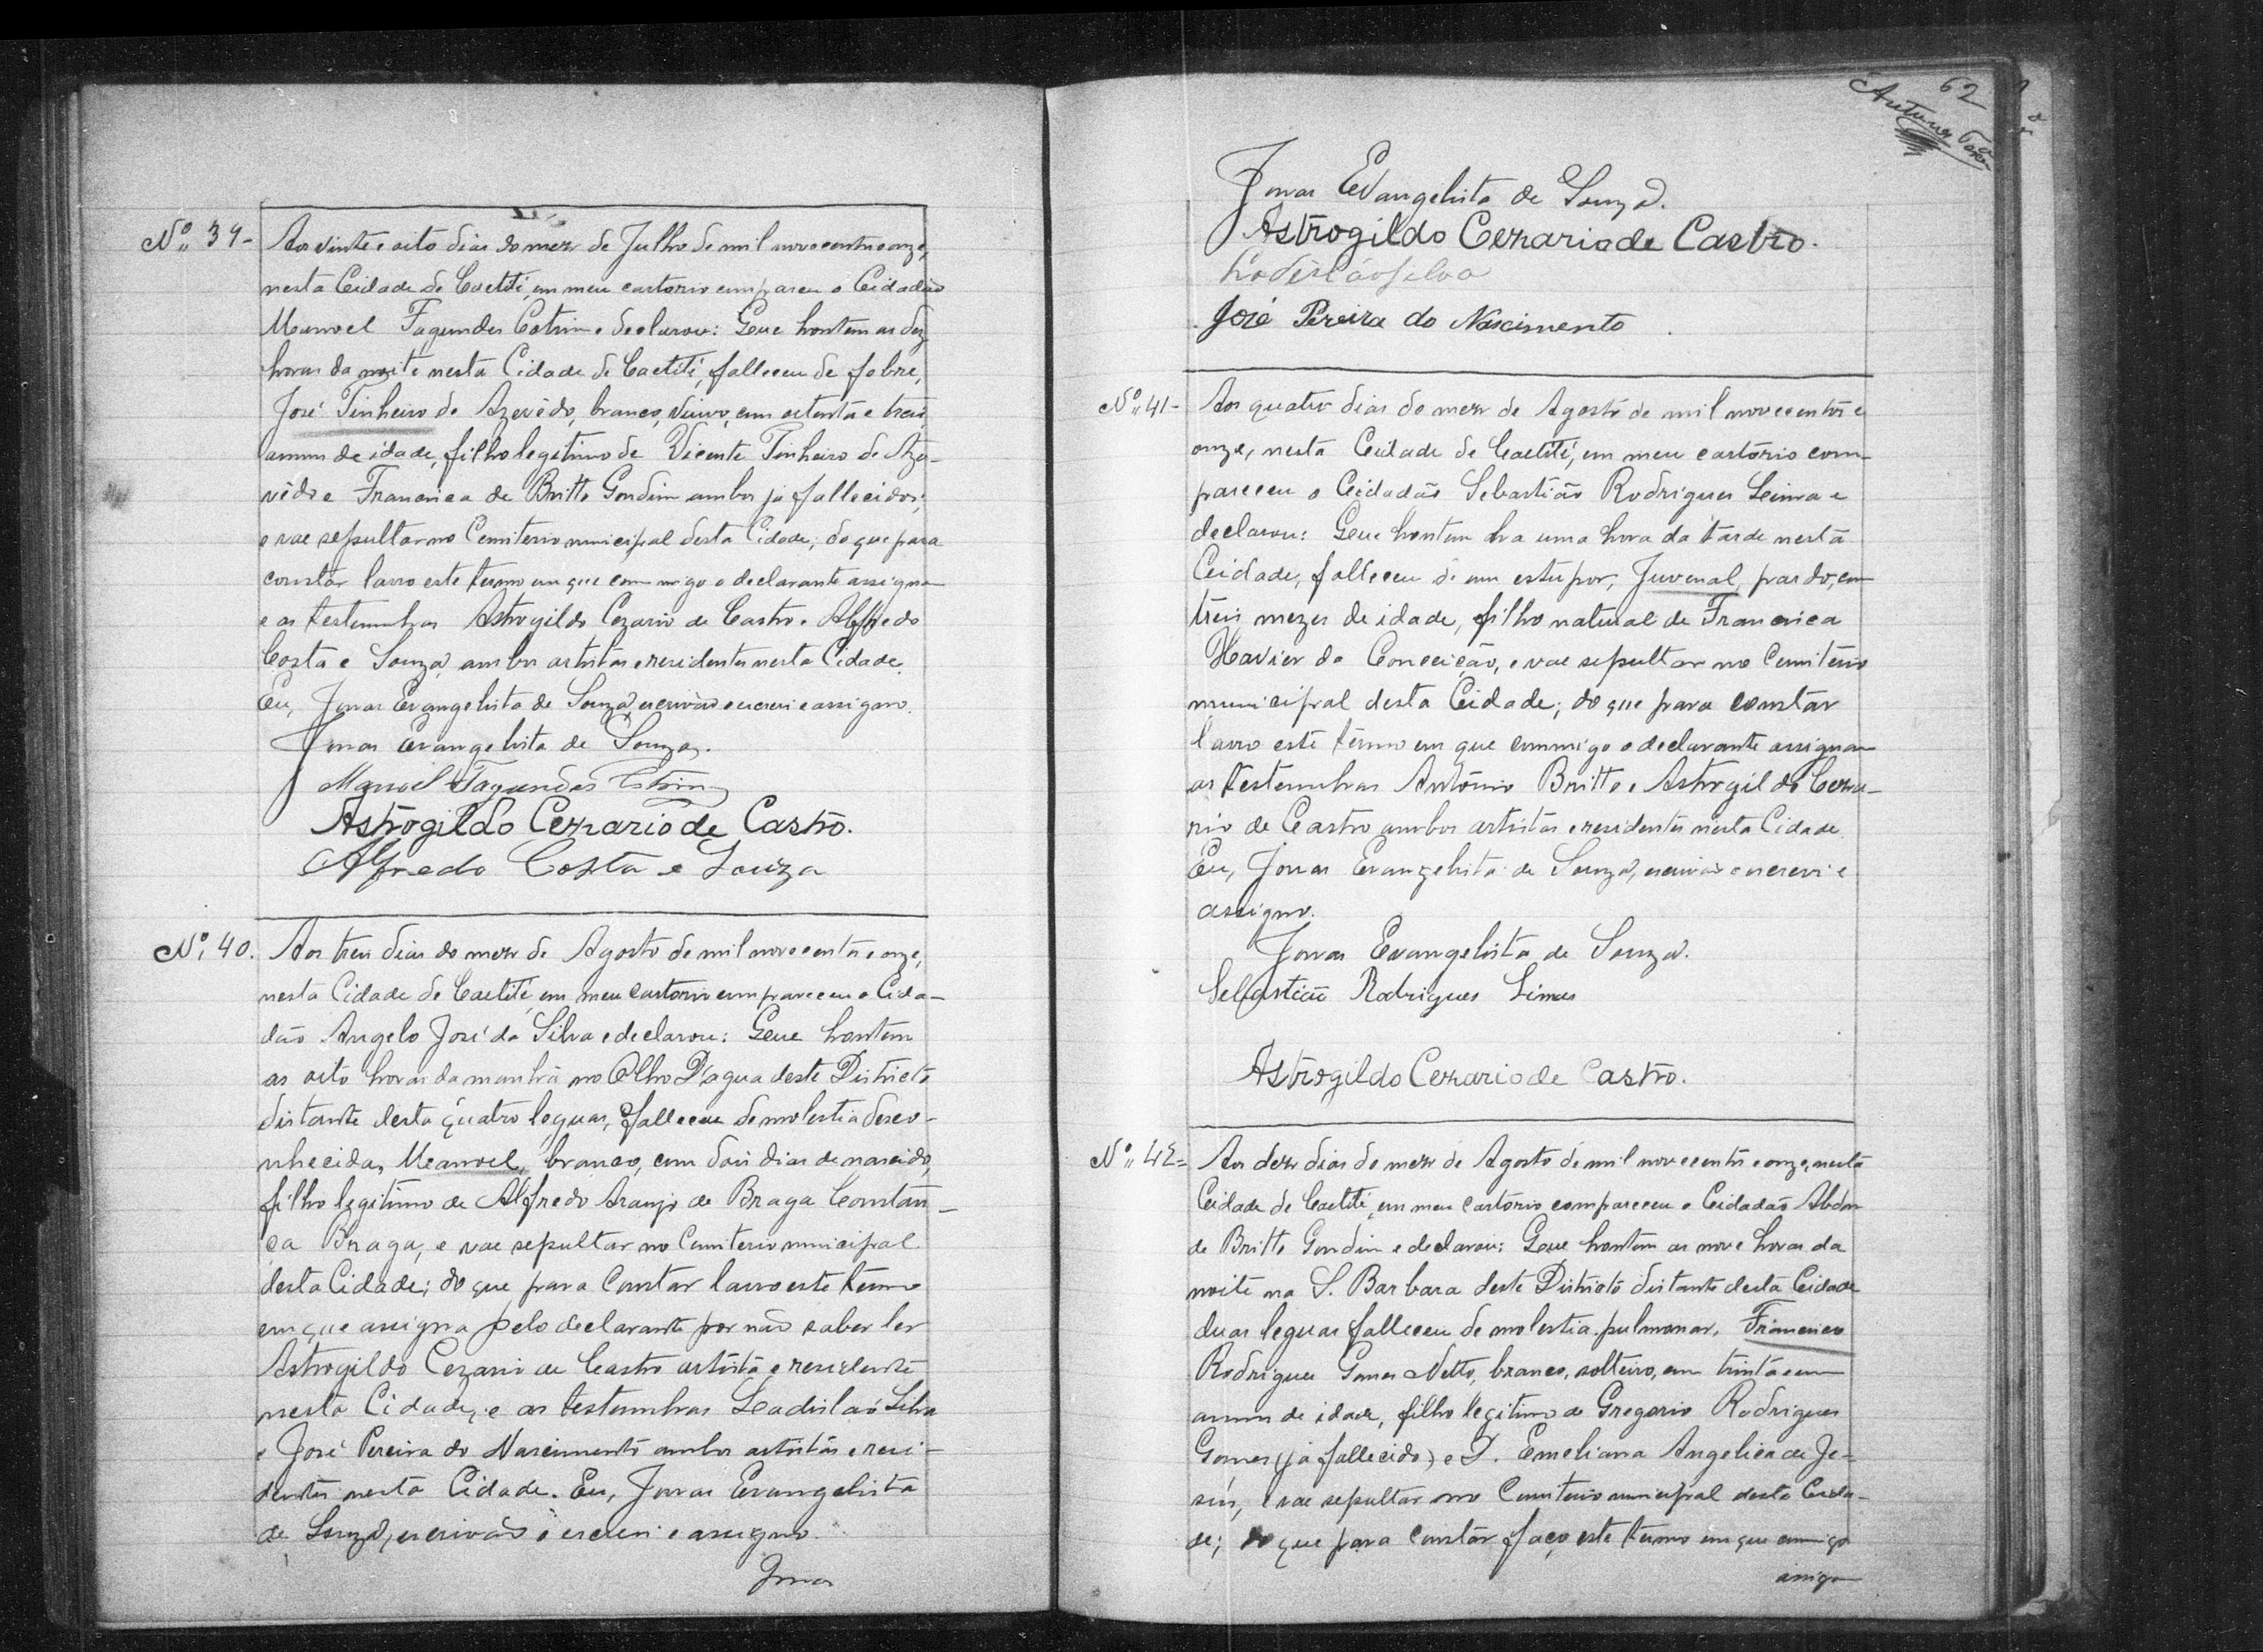 Nº 39-
Aos vinte e oito dias do mez de Julho de mil novecentos e onze,
nesta Cidade de Caetité, em meu cartorio compareu o Cidadão
Manoel Fagundes Cotrim e declarou: Que hontem as dez
horas da noite nesta Cidade de Caetité, falleceu de febre,
José Pinheiro de Azevêdo, branco, viuvo, com oitenta e trez
annos de idade, filho legitimo de Vicente Pinheiro de Aze-
vêdo e Francisca de Britto Gondim ambos já fallecidos;
e vae sepultar no Cemiterio municipal desta Cidade; do que para
constar lavro este termo em que commigo o declarante assigna
e as testemunhas Astrogildo Cezario de Castro e Alfredo
Costa e Souza, ambos artistas e residentes nesta Cidade.
Eu, Jonas Evangelista de Souza, escrivão o escrevi e assigno.
Jonas Evangelista de Souza.
Manoel Fagundes Cotrim
Astrogildo Cezario de Castro.
Alfredo Costa e Souza
Nº 40.
Aos tres dias do mez de Agosto de mil novecentos e onze,
nesta Cidade de Caetité, em meu cartorio compareceu o Cida-
dão Angelo José da Silva e declarou: Que hontem
as oito horas da manhã no Olho D'agua deste Districto
distante desta quatro leguas, falleceu de molestia desco-
nhecida, Manoel, branco, com dois dias de nascido,
filho legitimo de Alfredo Araujo de Braga Constan-
ca Braga, e vae sepultar no Cemiterio municipal
desta Cidade; do que para constar lavro este termo
em que assigna pelo declarante por não saber ler
Astrogildo Cezario de Castro artista e residente
nesta Cidade, e as testemunhas Ladislaó Silva
e José Pereira do Nascimento ambos artistas e resi-
dentes nesta Cidade. Eu, Jonas Evangelista
de Souza, escrivão o escrevi e assigno.
Jonas
62
Jonas Evangelista de Souza.
Astrogildo Cezario de Castro.
Ladisláo Silva
José Pereira do Nascimento
Nº 41-
Aos quatro dias do mez de Agosto de mil novecentos e
onze, nesta Cidade de Caetité, em meu cartorio com-
pareceu o Cidadão Sebastião Rodrigues Lima e
declarou: Que hontem ha uma hora da tarde nesta
Cidade, falleceu de um estupor, Juvenal, pardo, com
trêis mezes de idade, filho natural de Francisca
Xavier da Conceição, e vae sepultar no Cemiterio
municipal desta Cidade; do que para constar
lavro este termo em que commigo o declarante assignam
as testemunhas Antônio Britto e Astrogildo Ceza-
rio de Castro ambos artistas e residentes nesta Cidade.
Eu, Jonas Evangelista de Souza, escrivão o escrevi e
assigno.
Jonas Evangelista de Souza.
Sebastião Rodrigues Limas
Astrogildo Cezario de Castro.
Nº 42=
Aos dez dias do mez de Agosto de mil novecentos e onze, nesta
Cidade de Caetité, em meu cartorio compareceu o Cidadão Abdon
de Britto Gondim e declarou: Que hontem as nove horas da
noite na S. Barbara deste Districto distante desta Cidade
duas leguas falleceu de molestia pulmonar, Francisco
Rodrigues Gomes Netto, branco, solteiro, com trinta e um
annos de idade, filho legitimo de Gregorio Rodrigues
Gomes (já fallecido) e D. Emeliana Angelica de Je=
sus, e vae sepultar no Cemiterio municipal desta Cida-
de; do que para constar faço este termo em que commigo
assigna